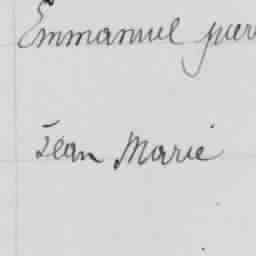 Emmanuel pier
Jean Marie